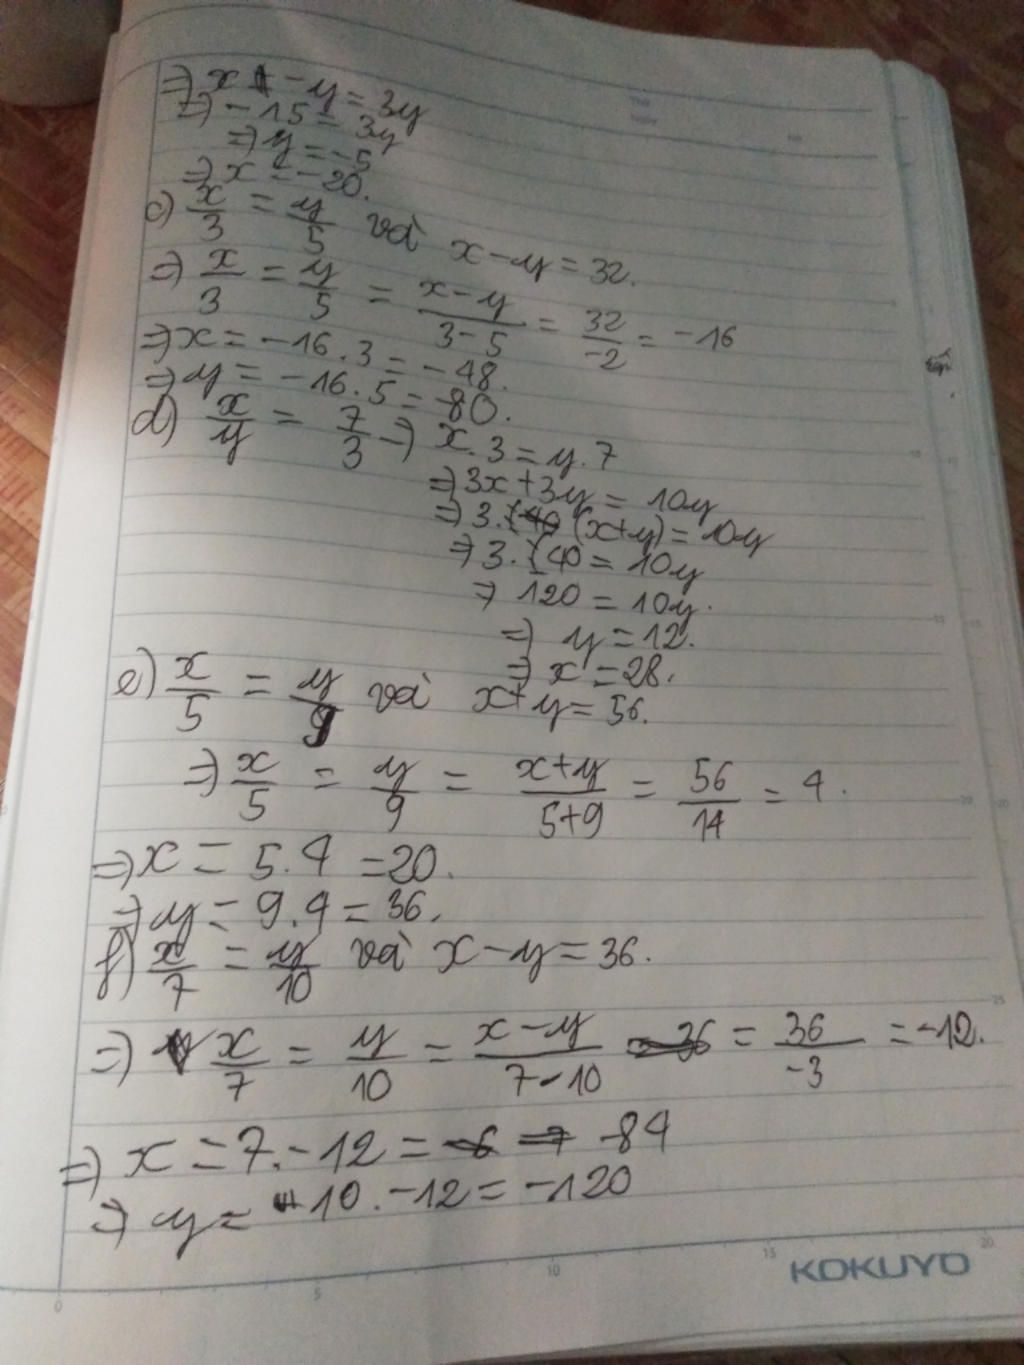 ⇒ x - y = 3y
⇒ - 15 = 3y
⇒ y = -5
⇒ x = -20.
c) x/3 = y/5 và x - y = 32.
⇒ x/3 = y/5 = x-y/3-5 = 32/-2 = -16
⇒ x = -16.3 = -48.
⇒ y = -16.5 = -80.
d) x/y = 7/3 ⇒ x.3 = y.7
⇒ 3x + 3y = 10y
⇒ 3.(x+y) = 10y
⇒ 3.40 = 10y
⇒ 120 = 10y.
⇒ y = 12.
⇒ x = 28.
e) x/5 = y/9 và x+y = 56.
⇒ x/5 = y/9 = x+y/5+9 = 56/14 = 4.
⇒ x = 5.4 = 20.
⇒ y = 9.4 = 36.
f) x/7 = y/10 và x - y = 36.
⇒ x/7 = y/10 = x-y/7-10 = 36/-3 = -12.
⇒ x = 7.-12 = -84
⇒ y = 10.-12 = -120
KOKUYO
0 5 10 15 20